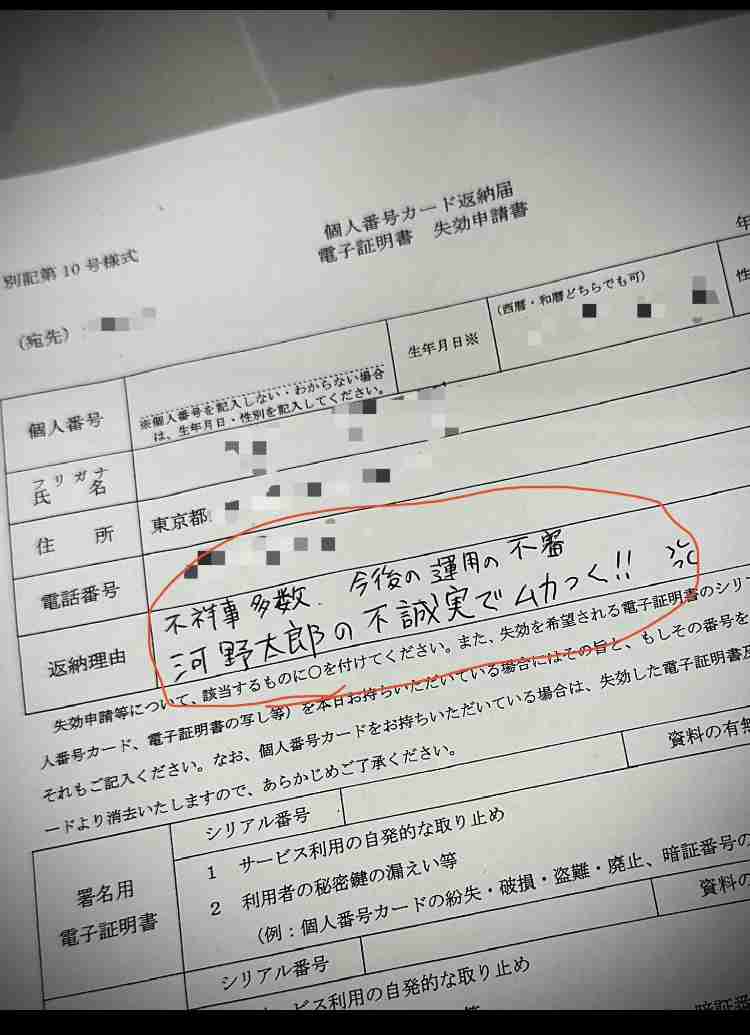 個人番号カード返納届
電子証明書 失効申請書
別記第10号様式
年
(宛先)
個人番号
※個人番号を記入しない・わからない場合
は、生年月日・性別を記入してください。
生年月日※
(西暦・和暦どちらでも可)
性
フリガナ
氏名
住所
東京都
電話番号
返納理由
不祥事多数. 今後の運用の不審
河野太郎の不誠実でムカつく!!
失効申請等について、該当するものに○を付けてください。また、失効を希望される電子証明書のシリ
人番号カード、電子証明書の写し等)を本日お持ちいただいている場合にはその旨と、もしその番号を
それもご記入ください。なお、個人番号カードをお持ちいただいている場合は、失効した電子証明書及
ードより消去いたしますので、あらかじめご了承ください。
署名用
電子証明書
シリアル番号
資料の有無
1 サービス利用の自発的な取り止め
2 利用者の秘密鍵の漏えい等
(例：個人番号カードの紛失・破損・盗難・廃止、暗証番号の
シリアル番号
資料の
サービス利用の自発的な取り止め